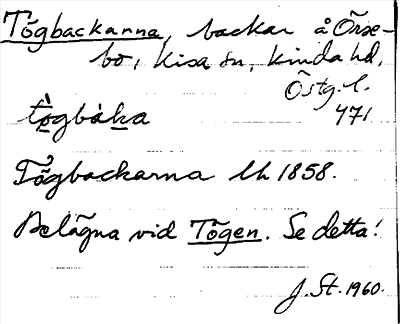 Tőgbackarna, backar å Örse-
bo, Kisa sn, Kinda hd,
Östg. l.
tògbàka 471
Tőgbackarna lh 1858.
Belägna vid Tögen. Se detta!
J. St. 1960.